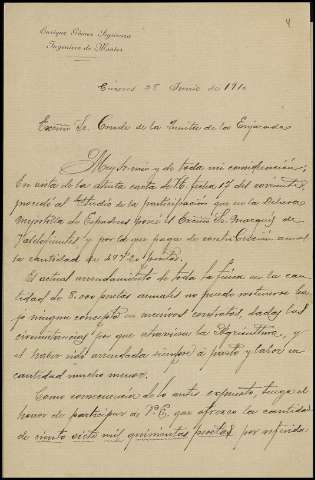 4
Enrique Gómez
Ingeniero de Montes
Cáceres 28 Junio de 1910
Excmo Sr. Conde de la de los Enjarada
Muy Sr mio y de toda mi consideración:
En vista de la atenta carta de V. fecha 17 del corriente,
procedí al estudio de la participación que en la Dehesa
de posee el Excmo Sr. Marqués de
Valdefuentes y por la que paga de renta anual
la cantidad de pesetas.
El actual arrendamiento de toda la finca en la can-
tidad de 8.000 pesetas anuales no puede sostenerse ba-
jo ningun concepto en nuevos contratos, dadas las
circunstancias por que atraviesa la Agricultura, y
el haber sido arrendada siempre a pasto y labor en
cantidad mucho menor.
Como consecuencia de lo antes expuesto, tengo el
honor de participar a V.E. que ofrezco la cantidad
de ciento siete mil quinientas pesetas por referida